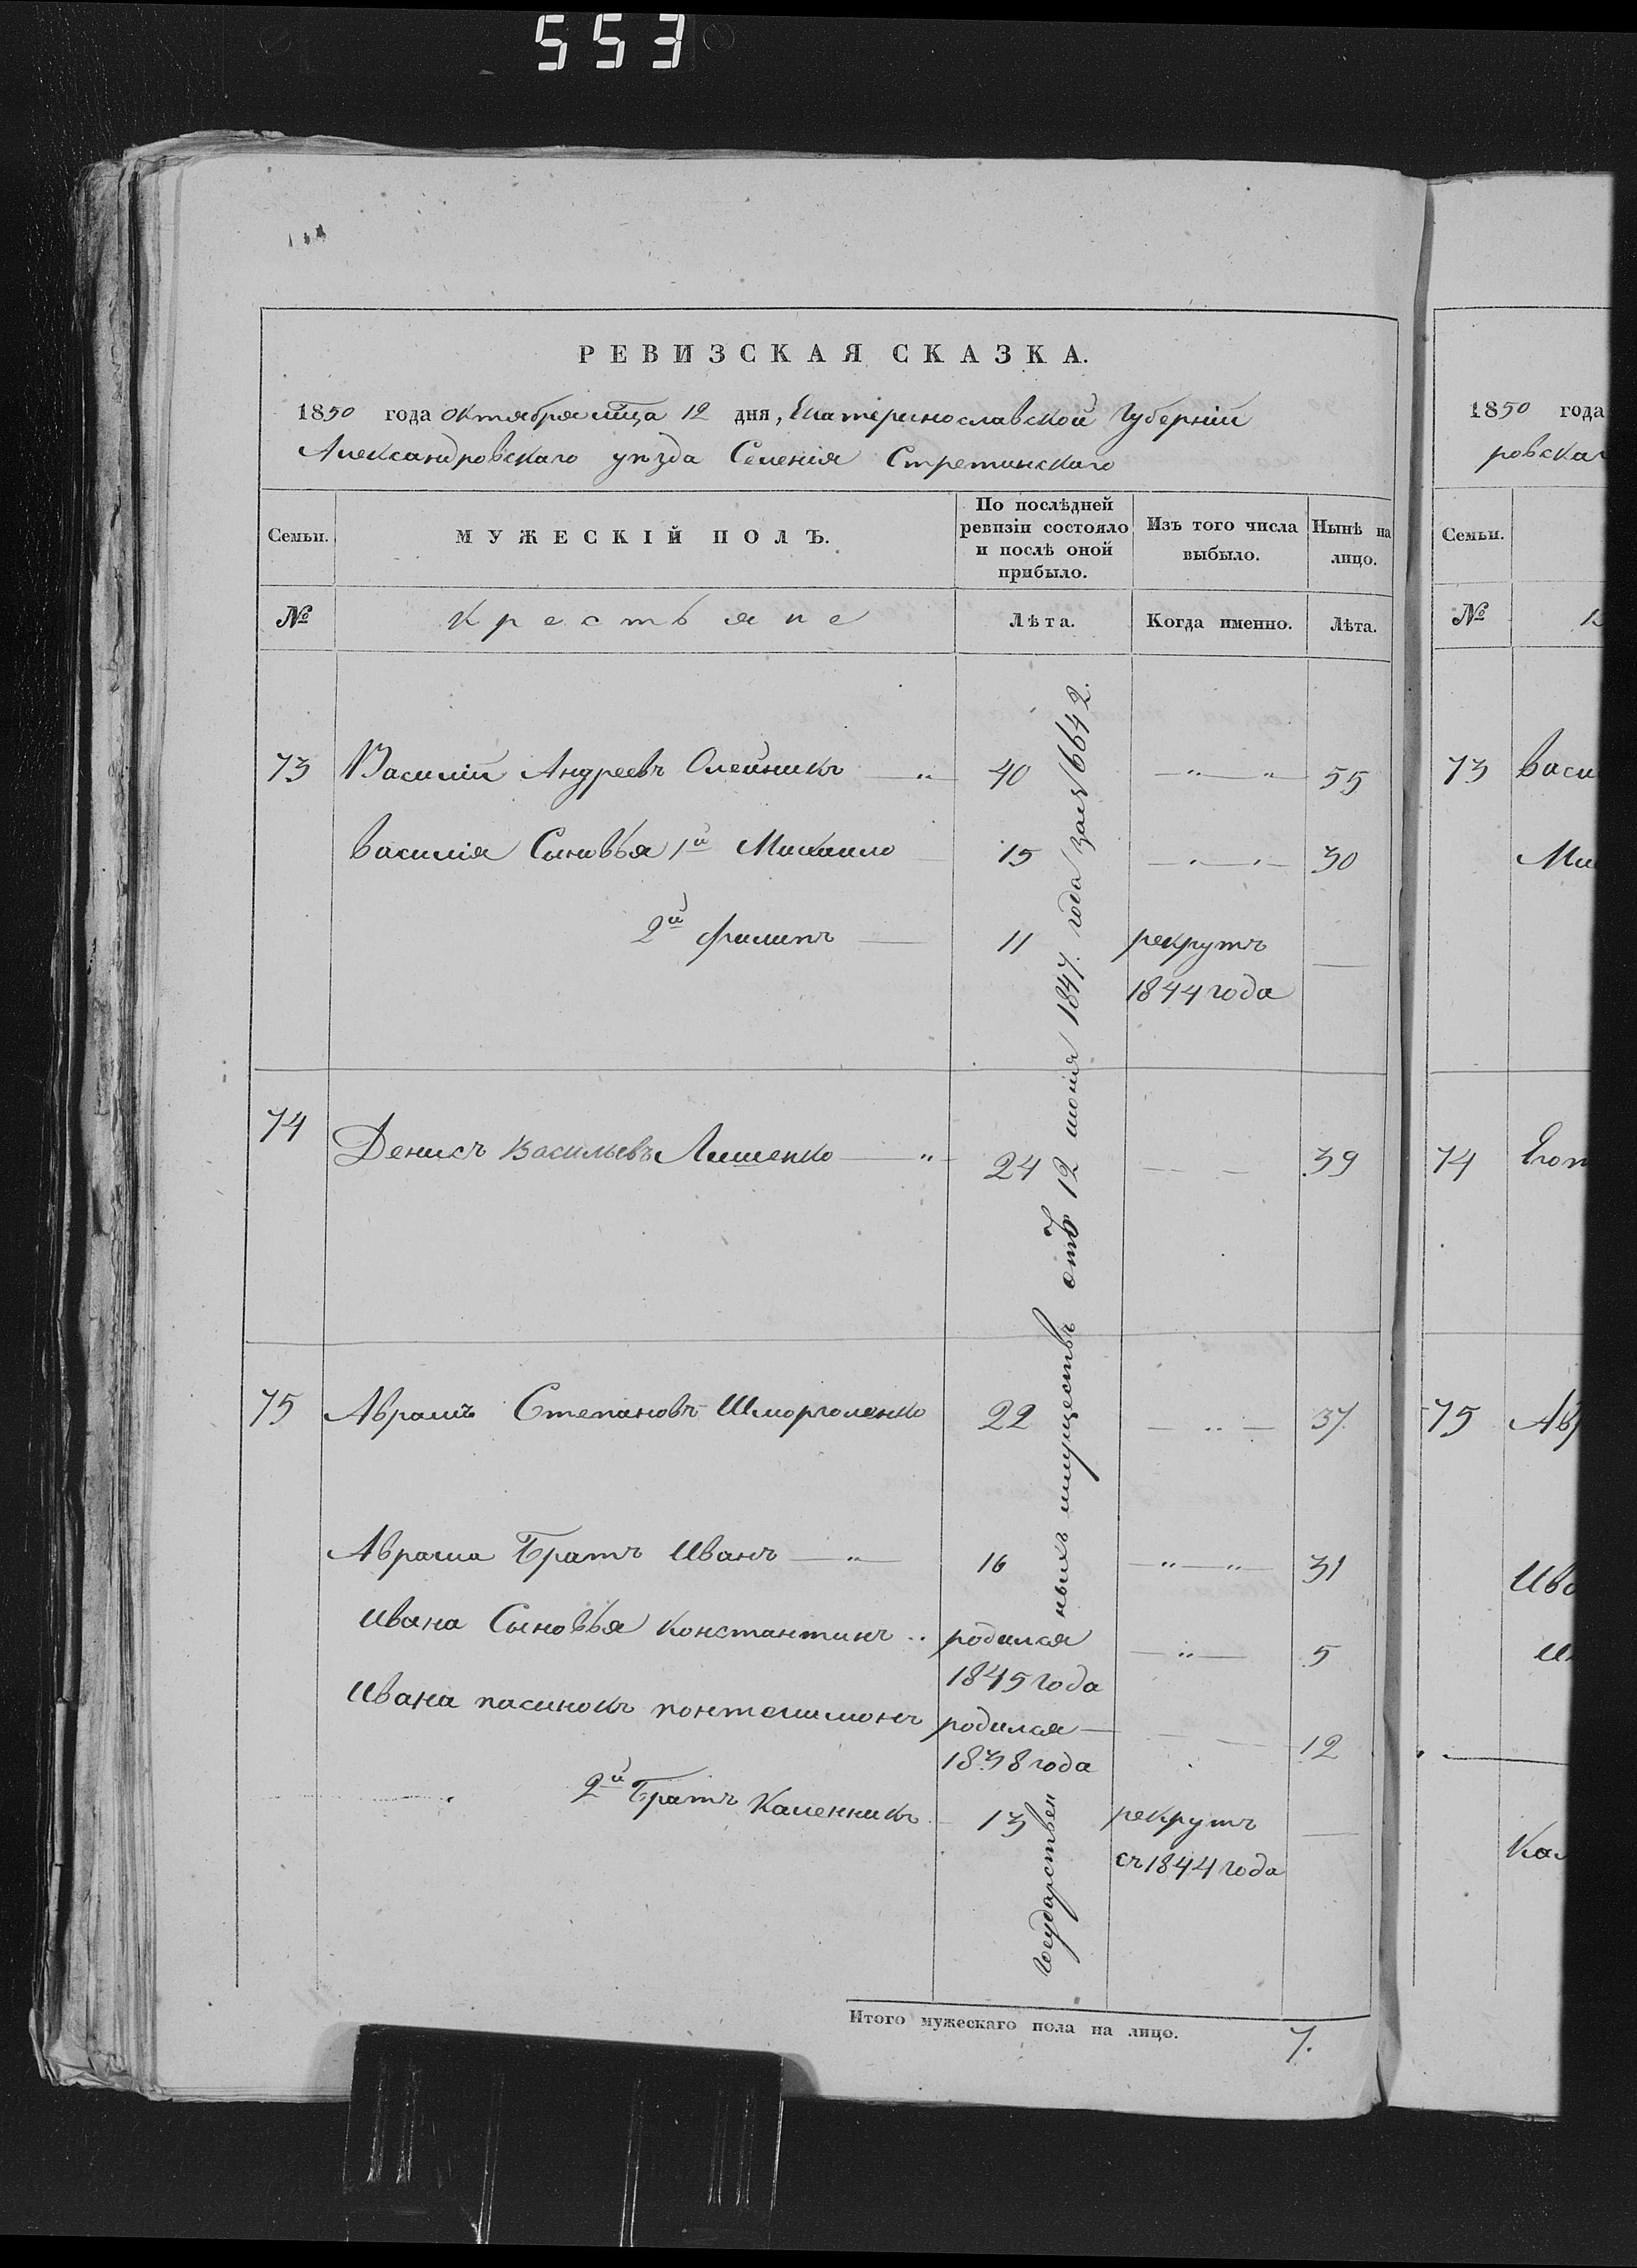 553
РЕВИЗСКАЯ СКАЗКА.
1850 года октября мца 12 дня, Екатеринославской Губернiи
Александровскаго уѣзда Селенiя Стретинскаго
Семьи.
МУЖЕСКIЙ ПОЛЪ.
По послѣдней
ревизiи состояло
и послѣ оной
прибыло.
Изъ того числа
выбыло.
Нынѣ на
лицо.
№
Крестьяне
Лѣта.
Когда именно.
Лѣта.
73 Василiй Андреевъ Олейникъ 40 55
Василiя Сыновья 1й Михаило 15 30
2й Филипъ 11 рекрутъ
1844 года
74 Денисъ Васильевъ Лишенко 24 39
75 Аврамъ Степановъ Шморголенко 22 37.
Аврама Братъ Иванъ 16 31
Ивана Сыновья Константинъ родился 5
1845 года
Ивана пасинокъ понтелимонъ родился 12
1838 года
2й Братъ Каленникъ 13 рекрутъ
съ 1844 года
Государствен
ныхъ имуществъ отъ 12 iюнiя 1847. года за № 16642.
Итого мужескаго пола на лицо. 7.
1850 года
ровскаг
Семьи.
№
73 Васи
Ми
74
75 Ав
Ива
Кал